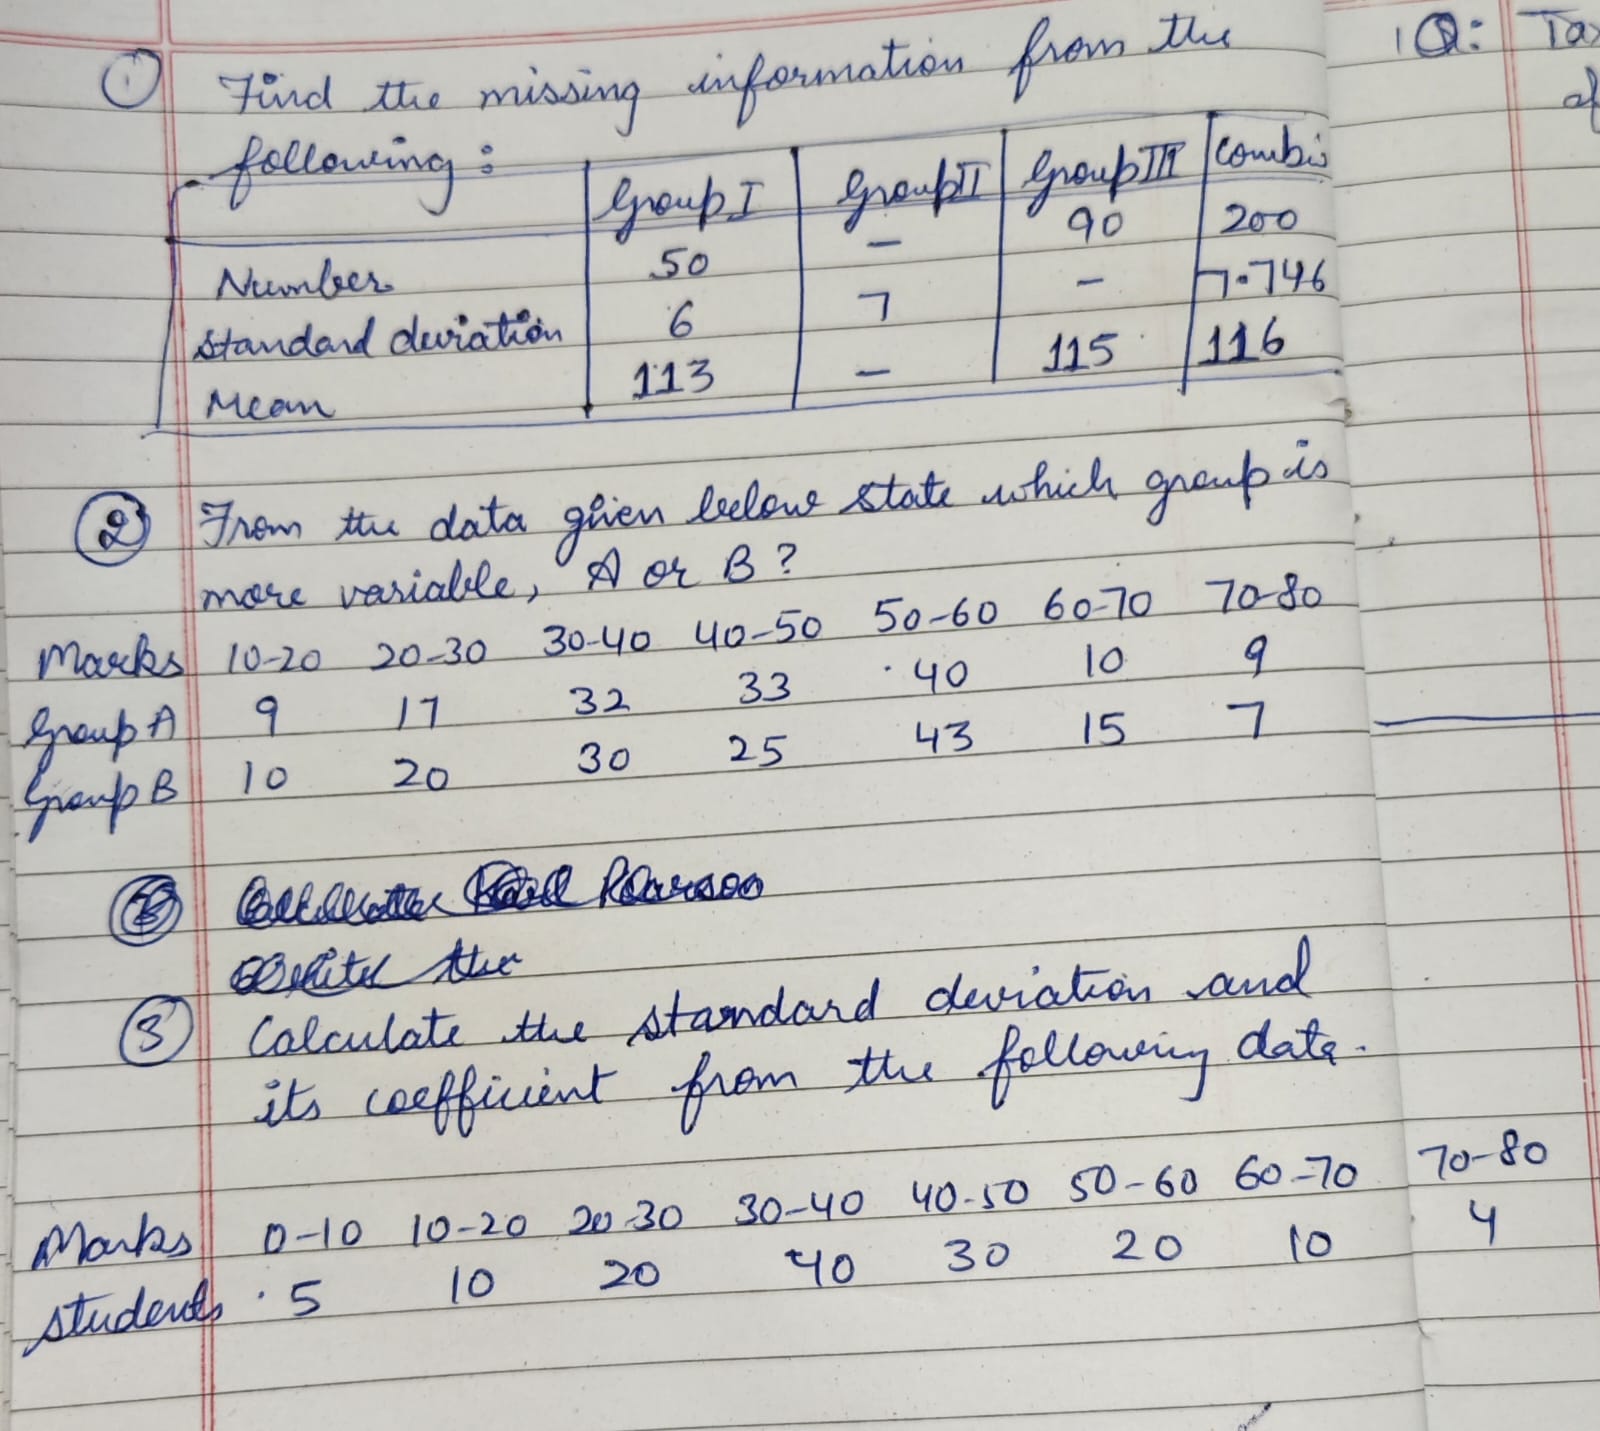 ① Find the missing information from the
following :
Group I Group II Group III Combi
Number 50 – 90 200
Standard deviation 6 7 – 7.746
Mean 113 – 115 116
② From the data given below state which group is
more variable, A or B ?
Marks 10-20 20-30 30-40 40-50 50-60 60-70 70-80
Group A 9 17 32 33 40 10 9
Group B 10 20 30 25 43 15 7
Pearson
the
③ Calculate the standard deviation and
its coefficient from the following data.
Marks 0-10 10-20 20-30 30-40 40-50 50-60 60-70 70-80
Students 5 10 20 40 30 20 10 4
1Q: Tax
of